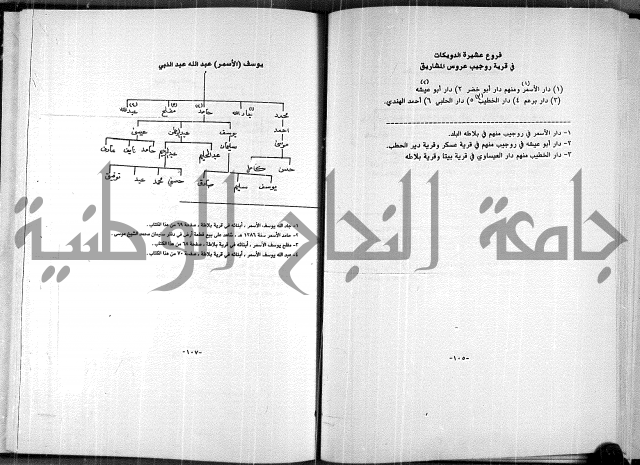 فروع عشيرة الدويكات
في قرية روجيب عروس المشاريق
(١) دار الأسمر ومنهم دار أبو خضر ٢) دار أبو عيشه
(٣) دار برغم ٤) دار الخطيب ٥) دار الحلبي ٦) أحمد الهندي.
١- دار الأسمر في روجيب منهم في بلاطه البلد.
٢- دار أبو عيشه في روجيب منهم في قرية عسكر وقرية دير الحطب.
٣- دار الخطيب منهم دار العيساوي في قرية بيتا وقرية بلاطه
-١٠٥-
يوسف (الأسمر) عبد الله عبد النبي
محمد جاد الله حامد مفلح عبدالله
احمد يوسف عبداللطيف عيسى
موسى سليمان عبدالحليم عبدالرحيم حامد نايف عارف
حسن كامل صادق حسني محمد عبد توفيق
يوسف سليم
١- جاد الله يوسف الأسمر ، أبنائه في قرية بلاطة ، صفحة ٦٩ من هذا الكتاب.
٢- حامد الأسمر سنة ١٢٨٦ هـ ، شاهد على بيع قطعة أرض في دفتر سليمان محمد الشيخ موسى.
٣- مفلح يوسف الأسمر ، أبنائه في قرية بلاطة ، صفحة ٦٨ من هذا الكتاب.
٤- عبد الله يوسف الأسمر ، أبنائه في قرية بلاطة ، صفحة ٧٠ من هذا الكتاب.
-١٠٧-
جامعة النجاح الوطنية